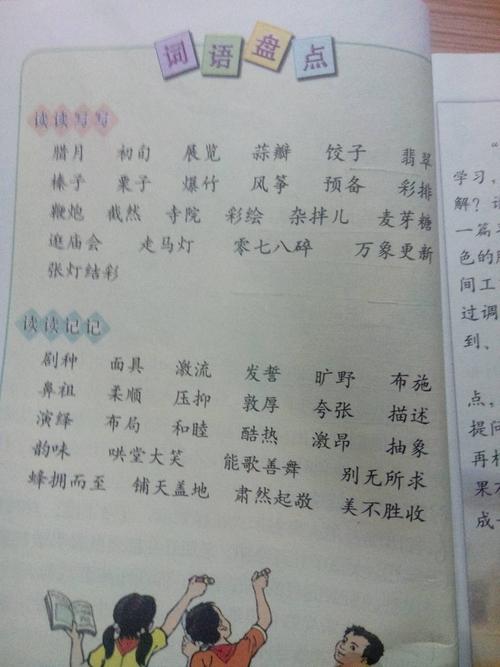 词语盘点
读读写写
腊月 初旬 展览 蒜瓣 饺子 翡翠
榛子 栗子 爆竹 风筝 预备 彩排
鞭炮 截然 寺院 彩绘 杂拌儿 麦芽糖
逛庙会 走马灯 零七八碎 万象更新
张灯结彩
读读记记
剧种 面具 激流 发誓 旷野 布施
鼻祖 柔顺 压抑 敦厚 夸张 描述
演绎 布局 和睦 酷热 激昂 抽象
韵味 哄堂大笑 能歌善舞 别无所求
蜂拥而至 铺天盖地 肃然起敬 美不胜收
“
学习，
解？
一篇
色的
间工
过调
到、
点，
提问
再
果
成